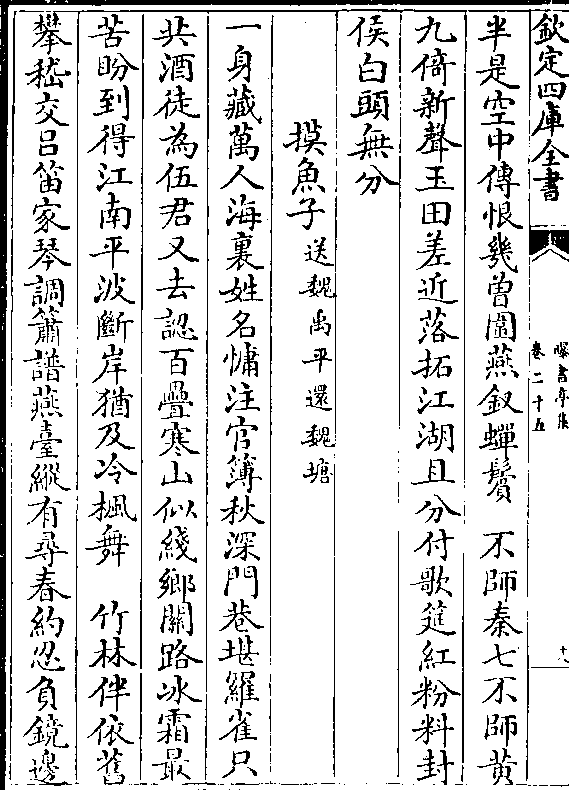 欽定四庫全書
曝書亭集
卷二十五
十八
半是空中傳恨幾曽圍燕釵蟬鬢　不師秦七不師黄
九倚新聲玉田差近落拓江湖且分付歌筵紅粉料封
侯白頭無分
摸魚子送魏禹平還魏塘
一身藏萬人海裏姓名慵注官簿秋深門巷堪羅雀只
共酒徒為伍君又去認百疊寒山似綫鄉關路冰霜最
苦盼到得江南平波斷岸猶及冷楓舞　竹林伴依舊
攀嵇交吕笛家琴調簫譜燕臺縱有尋春約忍負鏡邊